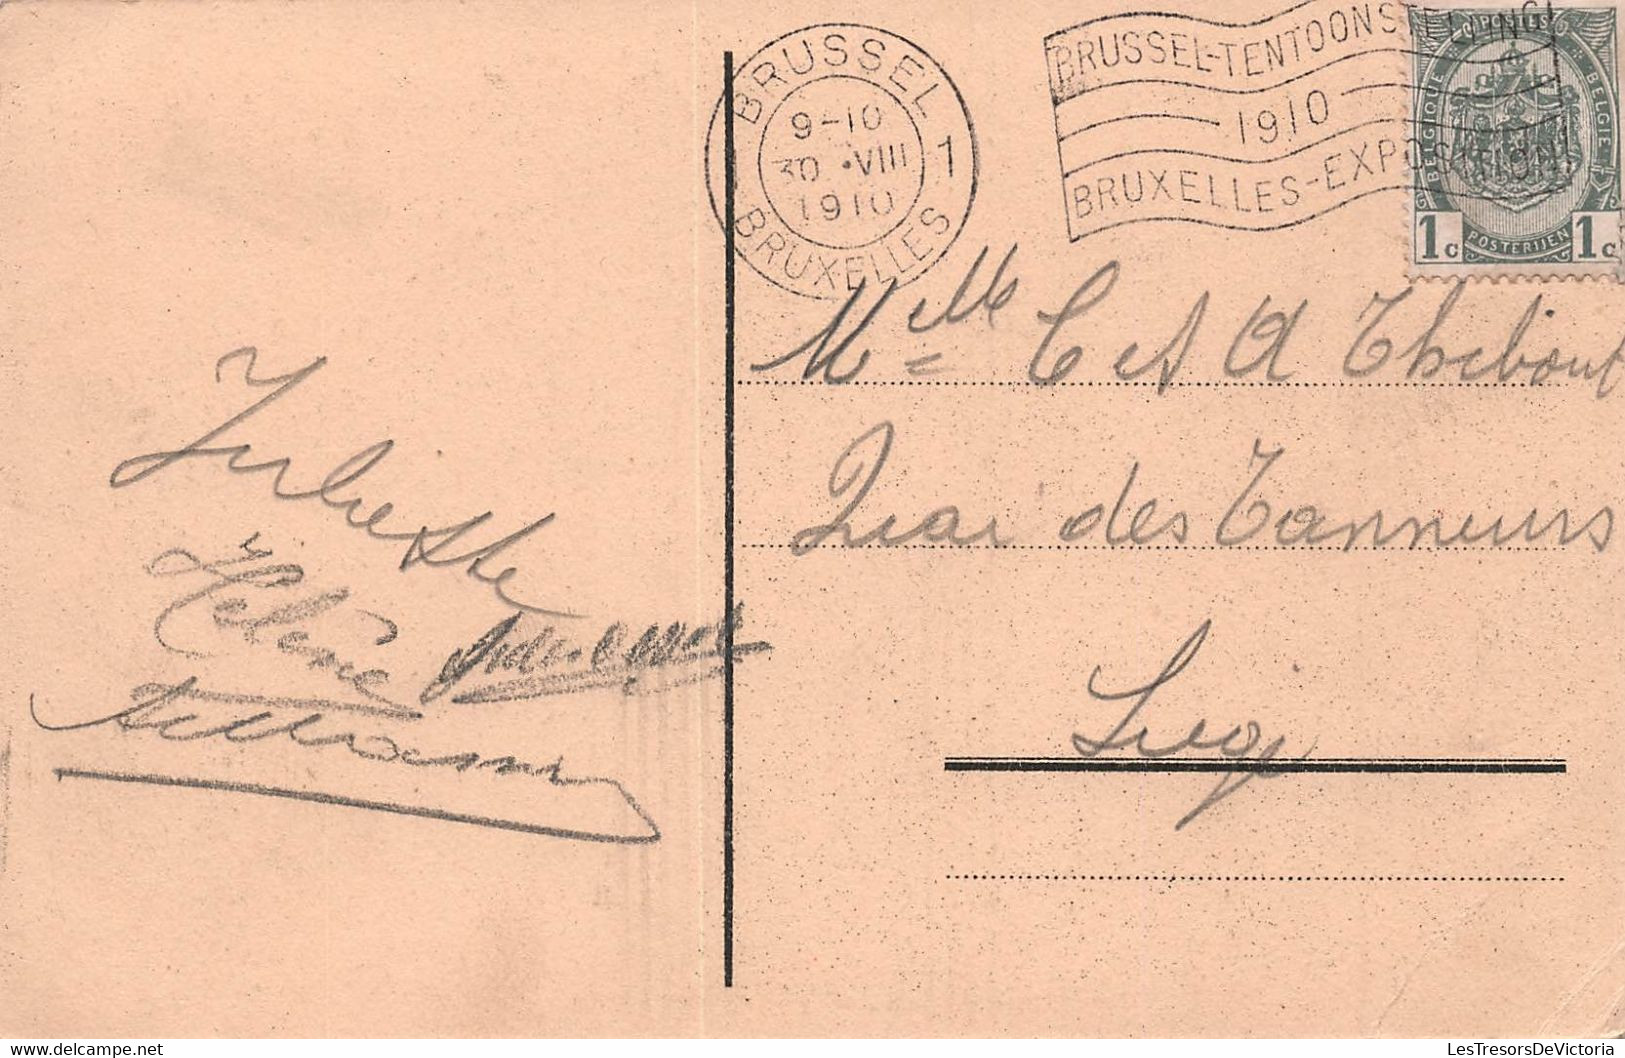 BRUSSEL 1
9-10
30 • VIII
1910
BRUXELLES
BRUSSEL-TENTOONSTELLING
1910
BRUXELLES-EXPOSITION
POSTES
BELGIQUE
BELGIE
POSTERIJEN
1c 1c
Melle C et A Thibout
Quai des Tanneurs
Liége
Juliette
Hélène
LesTresorsDeVictoria